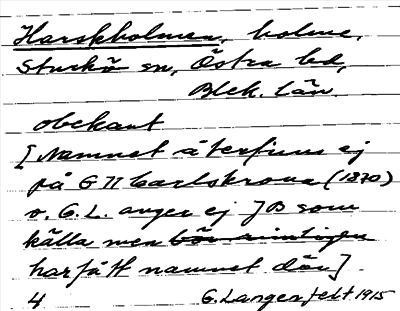 Harskholmen, holme,
Sturkö sn, Östra hd,
Blek. län.
obekant
[Namnet återfinns ej
på G Karlskrona (1870)
v. G. L. anger ej JB som
källa men bör rimligen
ha fått namnet där].
4 G. Langenfelt 1915